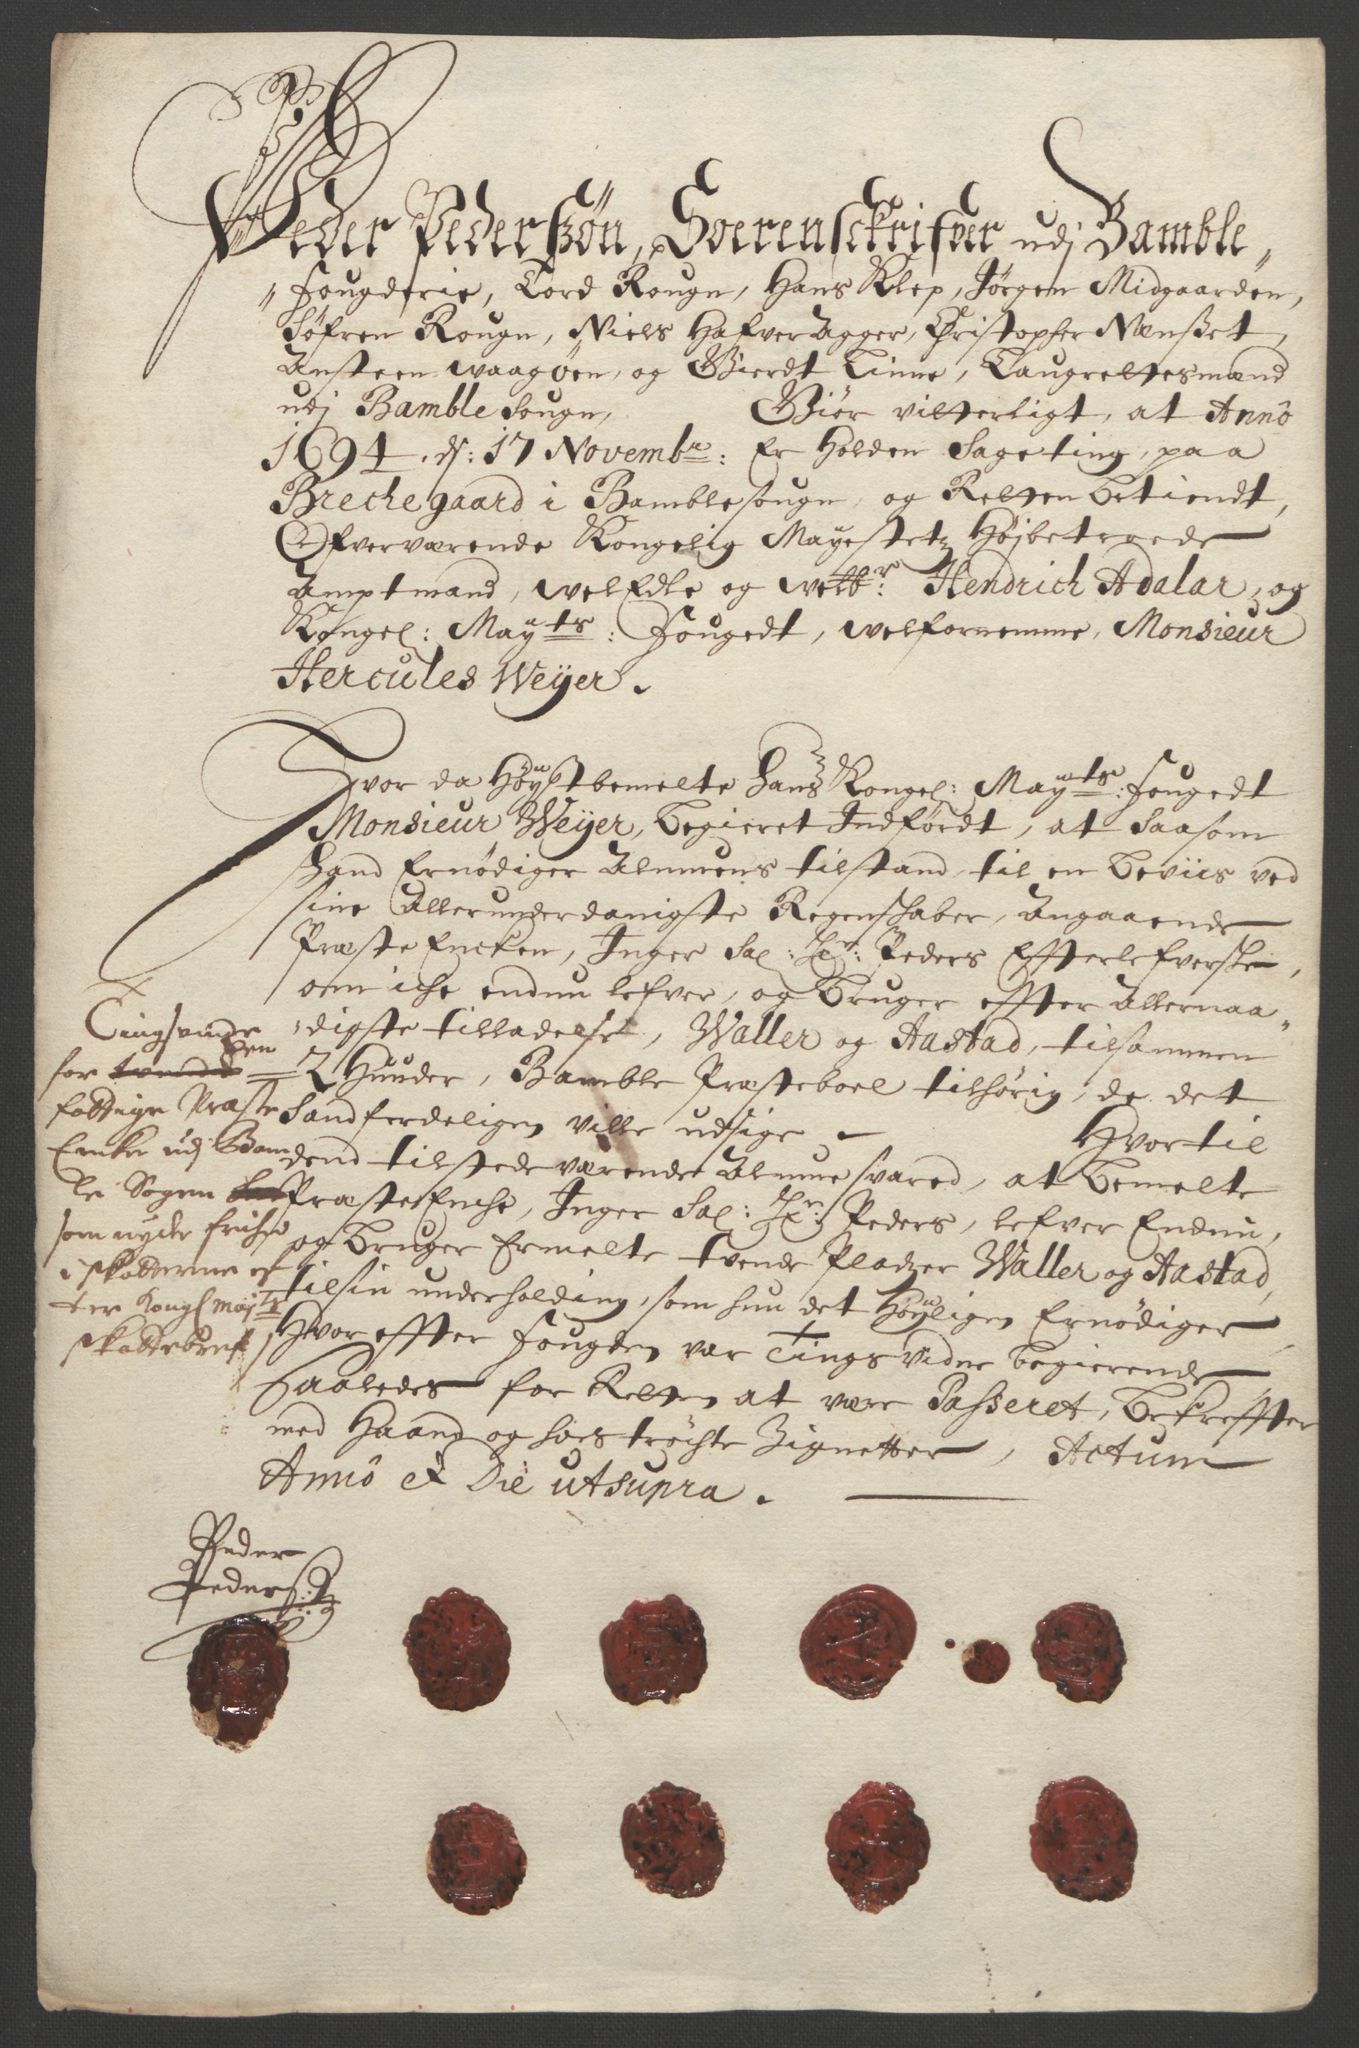 Peder Pederszøn, Soerenschrifver udj Bamble
Fougderie, Tord Rougn, Hans Klep, Jørgen Midgaarden,
Søfren Rougn, Niels Hafver Agger, Christopher Nænset,
Ansteen Waagøen, og Gierdt Tinne, Laugrettesmænd
udj Bamble Sougn, Giør vitterligt, at Annô
1694, d: 17 Novembr: Er holden Sageting, paa
Breche gaard i Bamble sougn, og Retten betiendt,
Ofverværende Kongelig Mayestetz Højbetroede
Amptmand, WelEdle og Welbr: Hendrich Adalar, og
Kongel: Mayts: Fougedt, Welfornemme, Monsieur
Hercules Weyer.
Hvor da Høystbemelte Hans Kongel: Mayts: Fougedt
Monsieur Weyer, begieret Indførdt, at saasom
Hand Ernødiger Almuens tilstand, til en beviis ved
sine Allerunderdanigste Regenschaber, Angaaende
Præste Encken, Inger Sal: Hr: Peders Efterlefverske,
om iche endnu lefver, og bruger effter Allernaa-
digste tilladelse, Waller og Aastad, tilsammen
2 Huuder, Bamble Præsteboel tilhørig, de det
Sandferdeligen ville udsige. Hvortil
dend tilstedeværende Almue svared, at bemelte
Præste Enche, Inger Sal: Hr: Peders, lefver Endnu,
og bruger Ermelte tvende Pladzer Waller og Aastad,
til sin underholding, som hun det Høyligen Ernødiger
Hvor effter Fougden var Tingsvidne begierende
Saaledes for Retten at være Passeret, bekreffter
med Haand og hoes trøchte Zignetter, Actum
Annô et Die ut supra.
Tingsvinde
for tvende en
fattige Præste
Encke udj Bam
le Sogen
som nyder frihed
i skatterne ef
ter Kongl Mayts
skattebref
Peder
Peders: